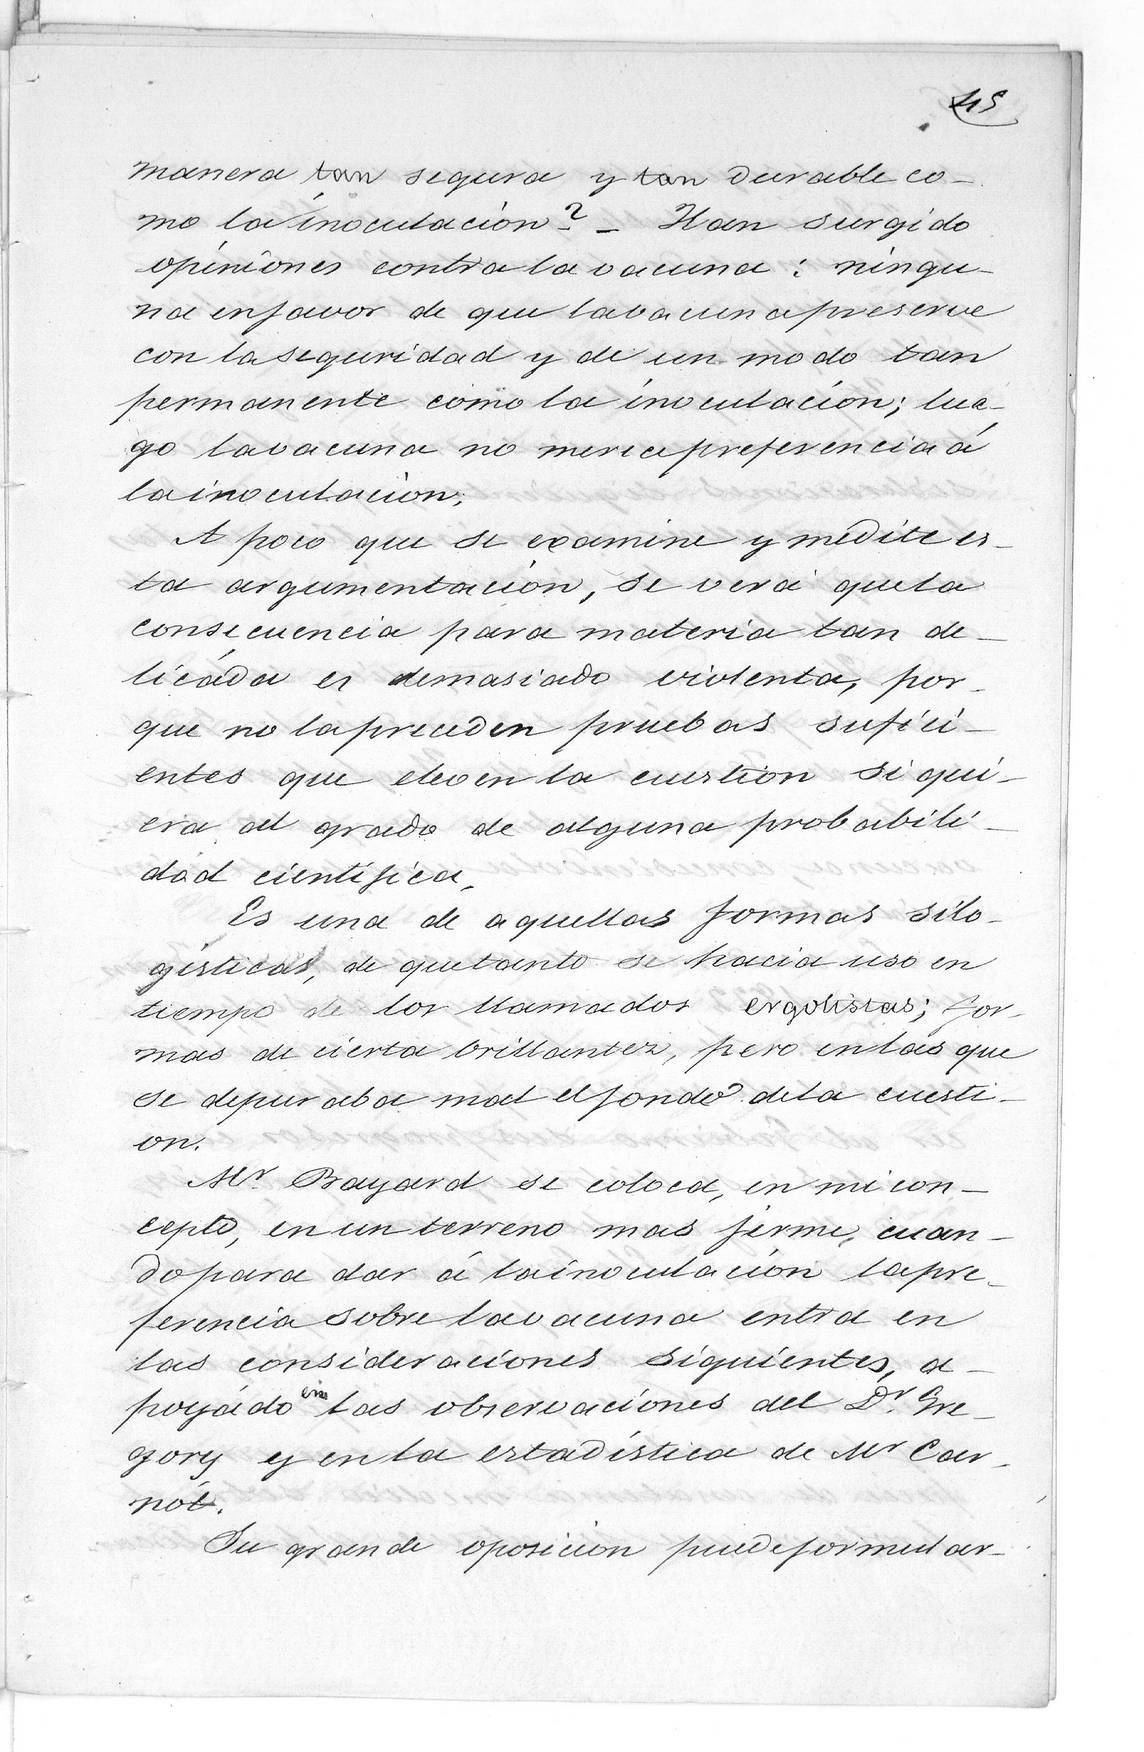 45
manera tan segura y tan durable co-
mo la inoculación? - Han surgido
opiniones contra la vacuna: ningu-
na en favor de que la vacuna preserve
con la seguridad y de un modo tan
permanente como la inoculación; lue-
go la vacuna no merece preferencia á
la inoculación.
A poco que se examine y medite es-
ta argumentación, se verá que la
consecuencia para materia tan de-
licáda es demasiado violenta, por-
que no la preceden pruebas sufici-
entes que eleven la cuestion siqui-
era al grado de alguna probabili-
dad cientifica.
Es una de aquellas formas silo-
gisticas, de que tanto se hacia uso en
tiempo de los llamados ergotistas; for-
mas de cierta brillantez, pero en las que
se depuraba mal el fondo de la cuesti-
on.
Mr. Bayard se coloca, en mi con-
cepto, en un terreno mas firme, cuan-
do para dar á la inoculación la pre-
ferencia sobre la vacuna entra en
las consideraciones siguientes, a-
poyádo en las observaciones del Dr. Gre-
gory y en la estadística de Mr Car-
nót.
Su grande oposicion puede formular-